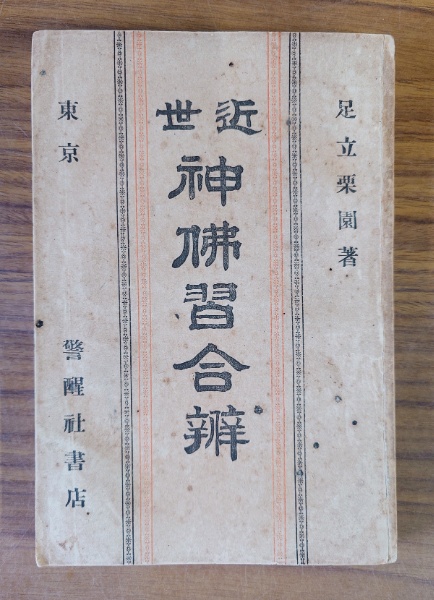 足立栗園著
近世
神佛習合辨
東京 警醒社書店